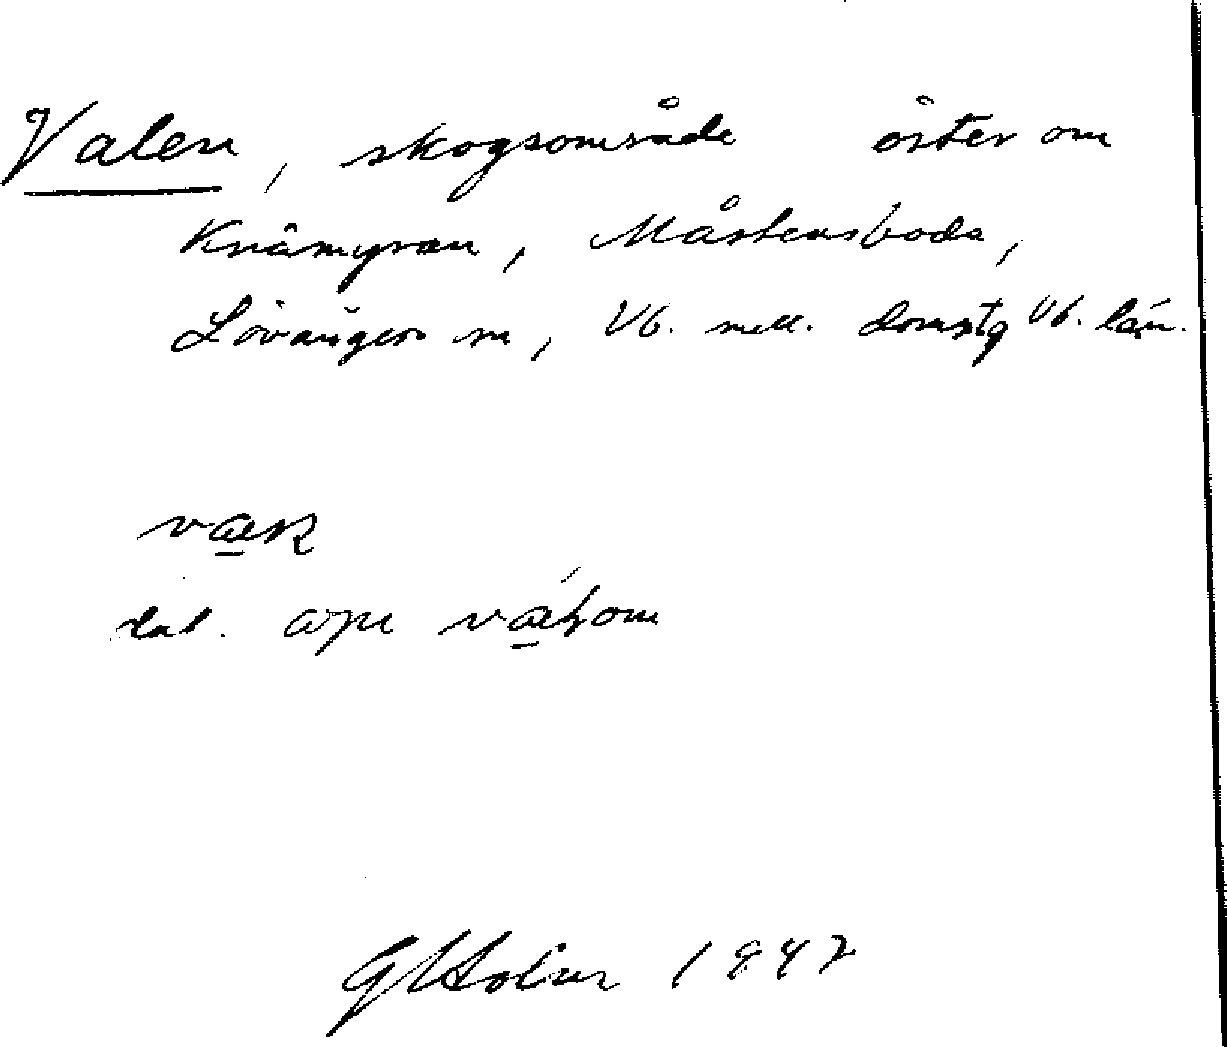 Valen, skogsområde öster om
Knämyran, Mårtensboda,
Lövångers sn, Vb. mell. domsg Vb. län.
dat. opu
G Holm 1942